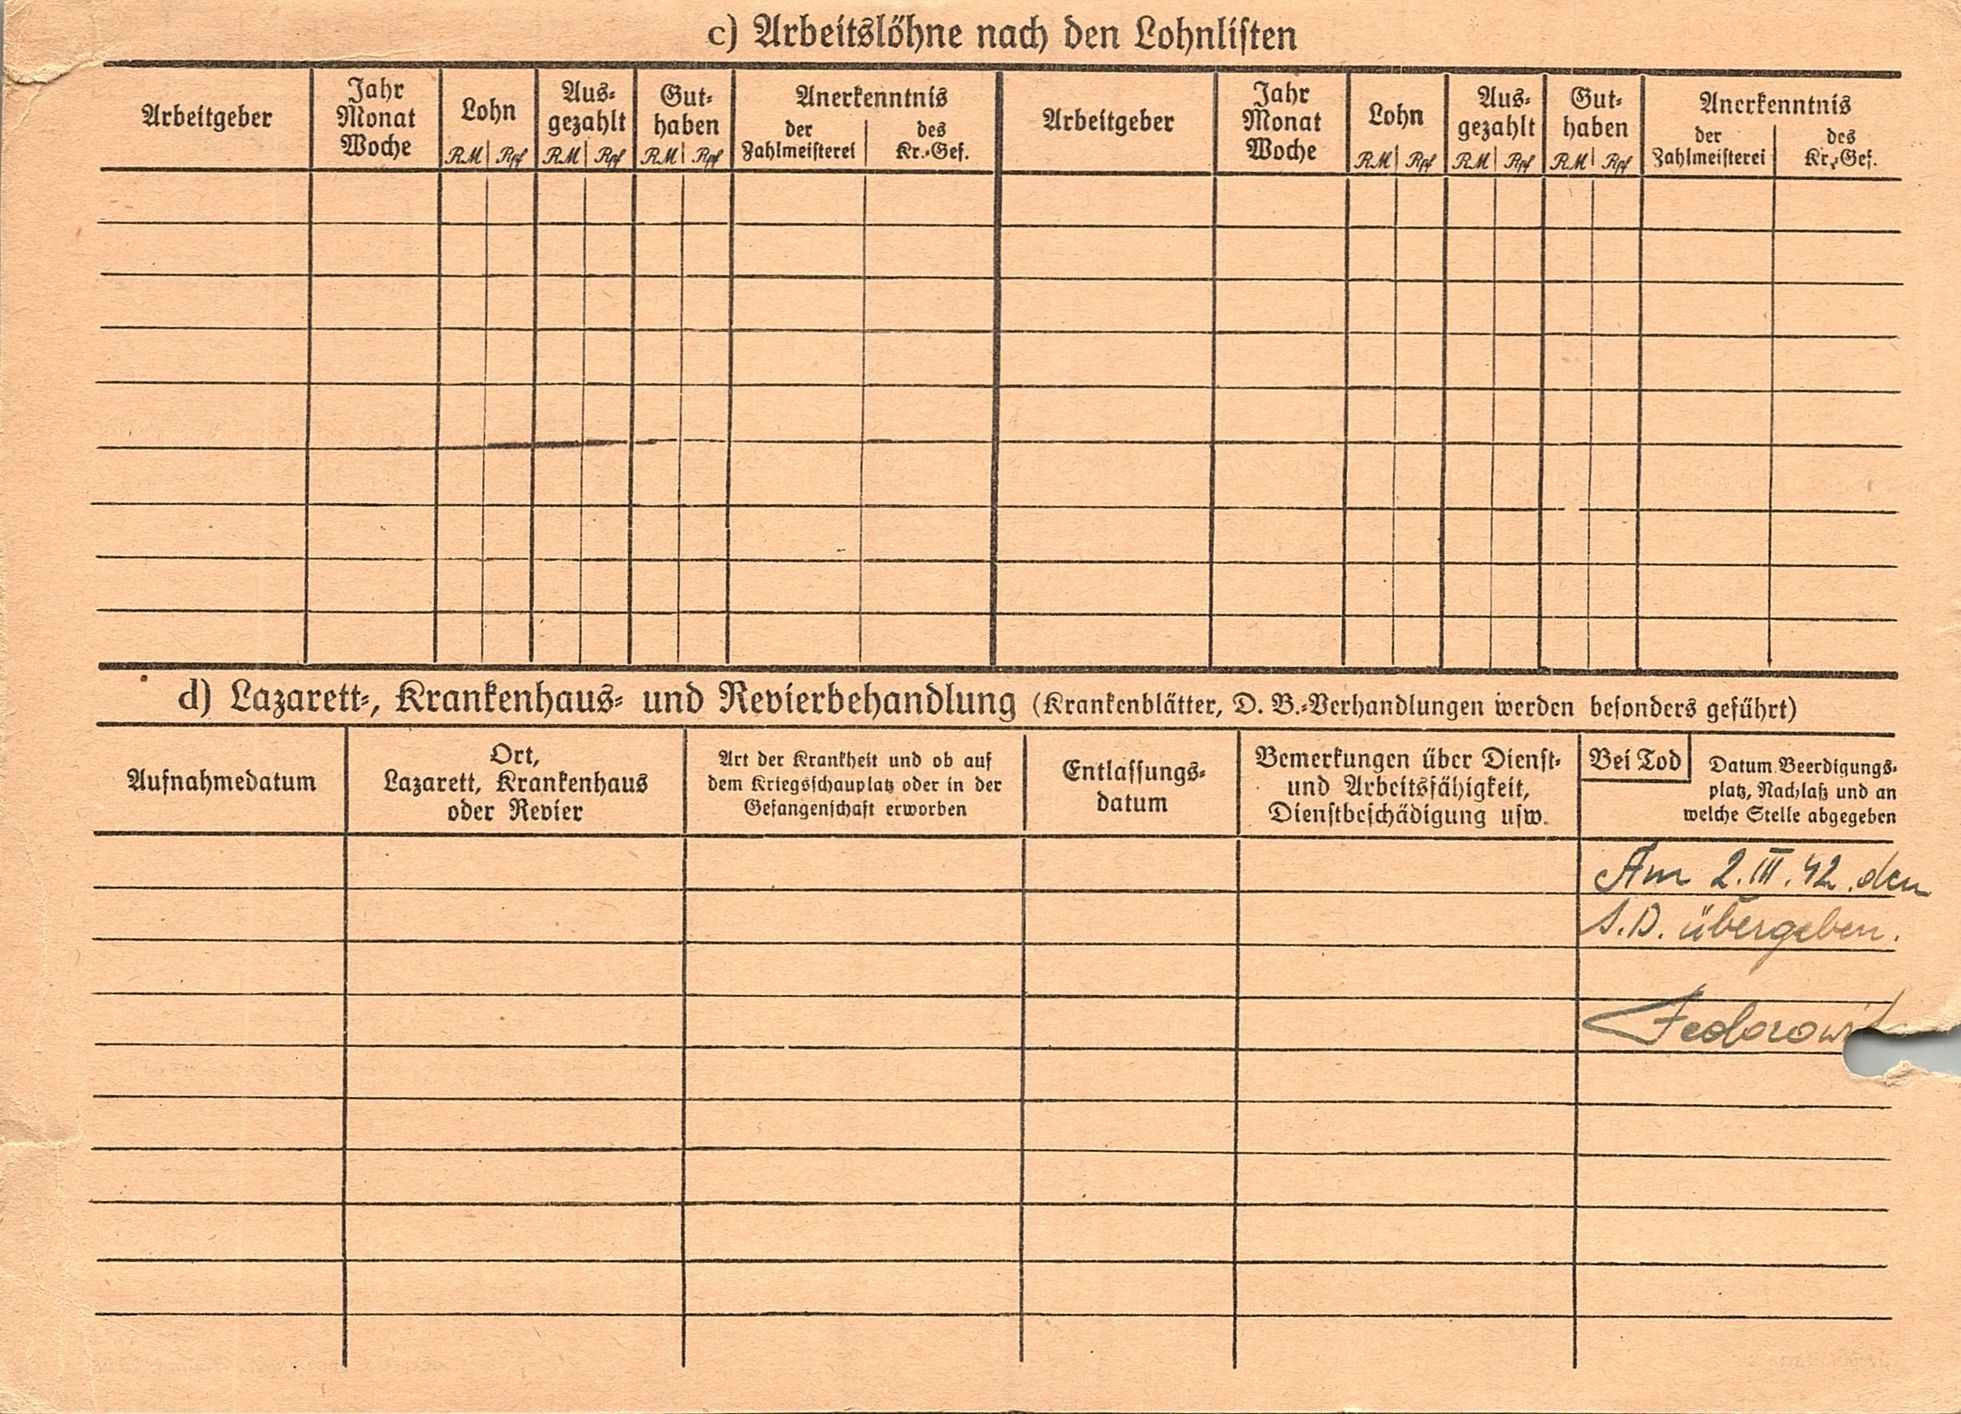 c) Arbeitslöhne nach den Lohnlisten
Arbeitgeber
Jahr
Monat
Woche
Lohn
RM Rpf
Aus-
gezahlt
RM Rpf
Gut-
haben
RM Rpf
Anerkenntnis
der
Zahlmeisterei
des
Kr.-Gef.
Arbeitgeber
Jahr
Monat
Woche
Lohn
RM Rpf
Aus-
gezahlt
RM Rpf
Gut-
haben
RM Rpf
Anerkenntnis
der
Zahlmeisterei
des
Kr.-Gef.
d) Lazarett-, Krankenhaus- und Revierbehandlung (Krankenblätter, D. B.-Verhandlungen werden besonders geführt)
Aufnahmedatum
Ort,
Lazarett, Krankenhaus
oder Revier
Art der Krankheit und ob auf
dem Kriegsschauplatz oder in der
Gefangenschaft erworben
Entlassungs-
datum
Bemerkungen über Dienst-
und Arbeitsfähigkeit,
Dienstbeschädigung usw.
Bei Tod
Datum Beerdigungs-
platz, Nachlaß und an
welche Stelle abgegeben
Am 2.III.42. den
S.D. übergeben.